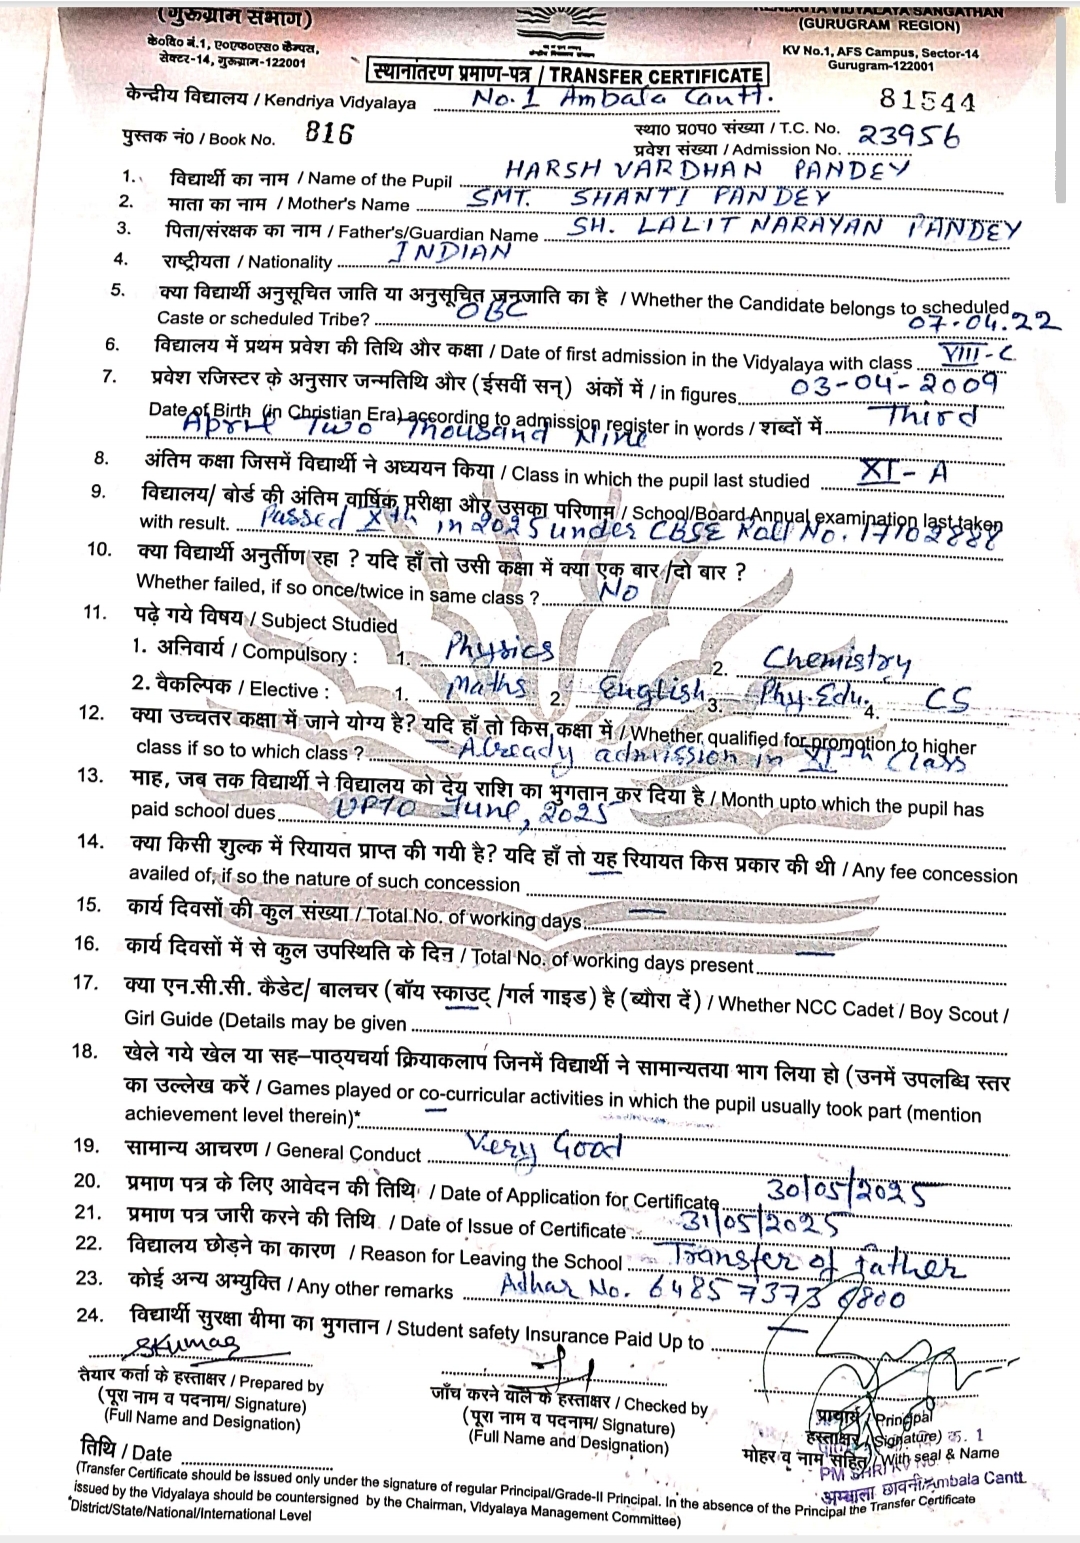 (गुरुग्राम संभाग)
KENDRIYA VIDYALAYA SANGATHAN
(GURUGRAM REGION)
के०वि० नं.1, ए०एफ०एस० कैम्पस,
सेक्टर-14, गुरुग्राम-122001
KV No.1, AFS Campus, Sector-14
Gurugram-122001
स्थानांतरण प्रमाण-पत्र / TRANSFER CERTIFICATE
केन्द्रीय विद्यालय / Kendriya Vidyalaya No. 1 Ambala Cantt. 81544
पुस्तक नं0 / Book No. 816 स्था0 प्र0प0 संख्या / T.C. No.
प्रवेश संख्या / Admission No. 23956
1. विद्यार्थी का नाम / Name of the Pupil HARSH VARDHAN PANDEY
2. माता का नाम / Mother's Name SMT. SHANTI PANDEY
3. पिता/संरक्षक का नाम / Father's/Guardian Name SH. LALIT NARAYAN PANDEY
4. राष्ट्रीयता / Nationality INDIAN
5. क्या विद्यार्थी अनुसूचित जाति या अनुसूचित जनजाति का है / Whether the Candidate belongs to scheduled
Caste or scheduled Tribe? OBC 07-04.22
6. विद्यालय में प्रथम प्रवेश की तिथि और कक्षा / Date of first admission in the Vidyalaya with class VIII-C
7. प्रवेश रजिस्टर के अनुसार जन्मतिथि और (ईसवीं सन्) अंकों में / in figures 03-04-2009
Date of Birth (in Christian Era) according to admission register in words / शब्दों में Third
April Two Thousand Nine
8. अंतिम कक्षा जिसमें विद्यार्थी ने अध्ययन किया / Class in which the pupil last studied XI-A
9. विद्यालय/ बोर्ड की अंतिम वार्षिक परीक्षा और उसका परिणाम / School/Board Annual examination last taken
with result. Passed Xth in 2025 under CBSE Roll No. 17102888
10. क्या विद्यार्थी अनुर्तीण रहा ? यदि हाँ तो उसी कक्षा में क्या एक बार/दो बार ?
Whether failed, if so once/twice in same class ? No
11. पढ़े गये विषय / Subject Studied
1. अनिवार्य / Compulsory : 1. Physics 2. Chemistry
2. वैकल्पिक / Elective : 1. Maths 2. English 3. Phy.Edu. 4. CS
12. क्या उच्चतर कक्षा में जाने योग्य है? यदि हाँ तो किस कक्षा में / Whether qualified for promotion to higher
class if so to which class ? Already admission in XIth Class
13. माह, जब तक विद्यार्थी ने विद्यालय को देय राशि का भुगतान कर दिया है / Month upto which the pupil has
paid school dues UPTO June, 2025
14. क्या किसी शुल्क में रियायत प्राप्त की गयी है? यदि हाँ तो यह रियायत किस प्रकार की थी / Any fee concession
availed of, if so the nature of such concession
15. कार्य दिवसों की कुल संख्या / Total No. of working days
16. कार्य दिवसों में से कुल उपस्थिति के दिन / Total No. of working days present
17. क्या एन.सी.सी. कैडेट/ बालचर (बॉय स्काउट /गर्ल गाइड) है (ब्यौरा दें) / Whether NCC Cadet / Boy Scout /
Girl Guide (Details may be given
18. खेले गये खेल या सह-पाठ्यचर्या क्रियाकलाप जिनमें विद्यार्थी ने सामान्यतया भाग लिया हो (उनमें उपलब्धि स्तर
का उल्लेख करें / Games played or co-curricular activities in which the pupil usually took part (mention
achievement level therein)*
19. सामान्य आचरण / General Conduct Very Good
20. प्रमाण पत्र के लिए आवेदन की तिथि / Date of Application for Certificate 30/05/2025
21. प्रमाण पत्र जारी करने की तिथि / Date of Issue of Certificate 31/05/2025
22. विद्यालय छोड़ने का कारण / Reason for Leaving the School Transfer of father
23. कोई अन्य अभ्युक्ति / Any other remarks Adhar No. 6485 7373 6800
24. विद्यार्थी सुरक्षा बीमा का भुगतान / Student safety Insurance Paid Up to
SKumar
तैयार कर्ता के हस्ताक्षर / Prepared by
(पूरा नाम व पदनाम/ Signature)
(Full Name and Designation)
जाँच करने वाले के हस्ताक्षर / Checked by
(पूरा नाम व पदनाम/ Signature)
(Full Name and Designation)
प्राचार्य / Principal
हस्ताक्षर / (Signature) क. 1
मोहर व नाम सहित / With seal & Name
PM SHRI
अम्बाला छावनी/Ambala Cantt
तिथि / Date
(Transfer Certificate should be issued only under the signature of regular Principal/Grade-II Principal. In the absence of the Principal the Transfer Certificate
issued by the Vidyalaya should be countersigned by the Chairman, Vidyalaya Management Committee)
*District/State/National/International Level